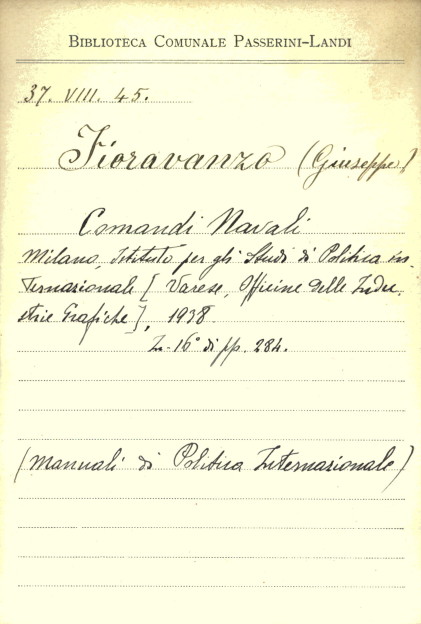 BIBLIOTECA COMUNALE PASSERINI-LANDI
37. VIII. 45.
Fioravanzo (Giuseppe)
Comandi Navali
Milano, Istituto per gli Studi di Politica in-
ternazionale [Varese, Officine delle Indu-
strie Grafiche], 1938.
In-16° di pp. 284.
(Manuali di Politica Internazionale)